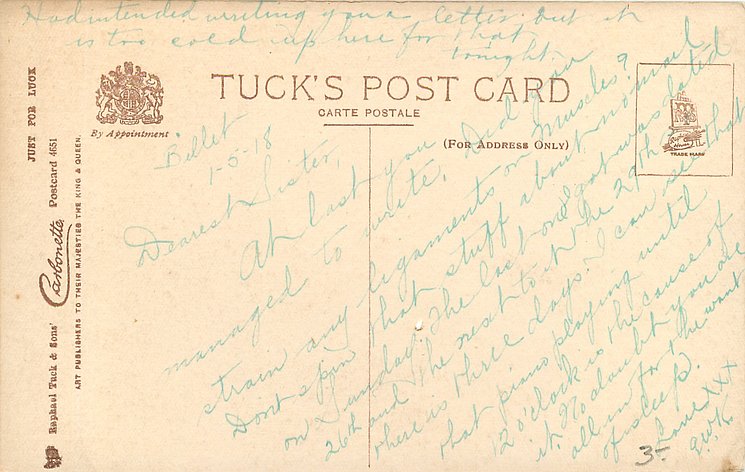 Had intended writing you a letter but it
is too cold up here for that
tonight.
TUCK'S POST CARD
CARTE POSTALE
(FOR ADDRESS ONLY)
By Appointment
TRADE MARK
JUST FOR LUCK
Carbonette Postcard 4651
Raphael Tuck & Sons'
ART PUBLISHERS TO THEIR MAJESTIES THE KING & QUEEN.
Billet
1-5-18
Dearest Sister,
At last you
managed to write, Did you
strain any ligaments or muscles?
Dont spin that stuff about no mail
on Sunday. The last one I got was dated
26th and the next to it the 29th
there is three days. I can see that
that piano playing until
12 o'clock is the cause of
it. No doubt you are
all in for the want
of sleep.
Love xxx
3-